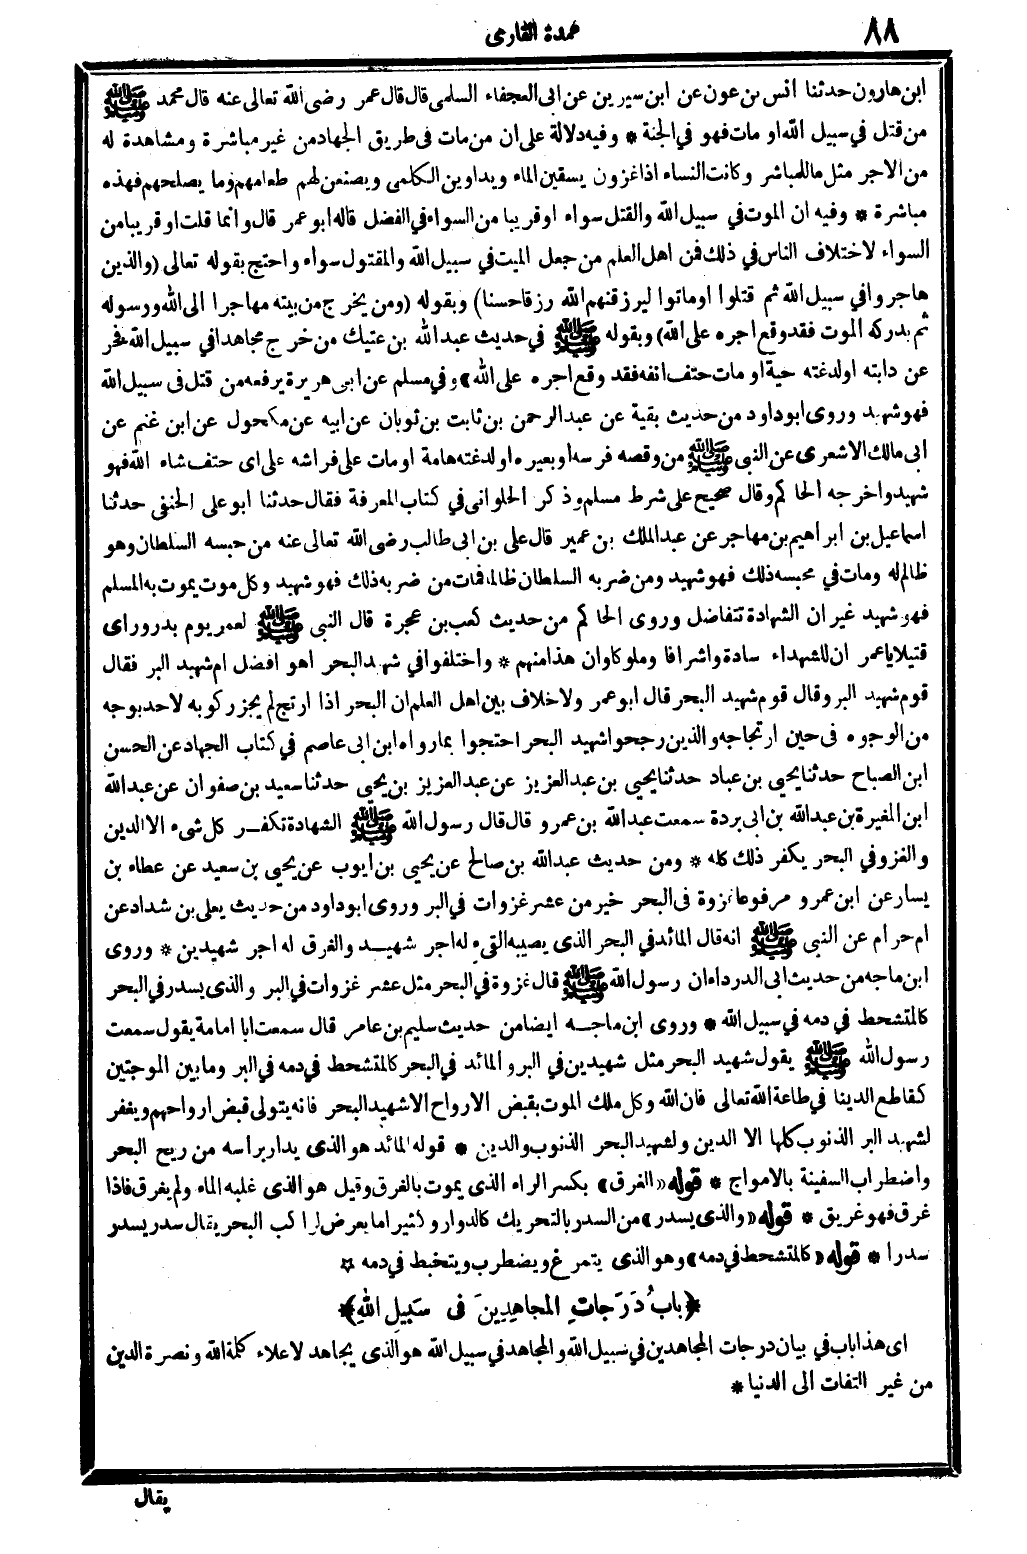 ٨٨
عمدة القارى
ابن هارون حدثنا انس بن عون عن ابن سيرين عن ابى العجفاء السلمى قال قال عمر رضى الله تعالى عنه قال محمد ﷺ
من قتل في سبيل الله او مات فهو في الجنة * وفيه دلالة على ان من مات فى طريق الجهاد من غير مباشرة ومشاهدة له
من الاجر مثل ما للمباشر وكانت النساء اذا غزون يسقين الماء ويداوين الكلمى ويصنعن لهم طعامهم وما يصلحهم فهذه
مباشرة * وفيه ان الموت في سبيل الله والقتل سواء او قريبا من السواء في الفضل قاله ابو عمر قال وانما قلت او قريبا من
السواء لاختلاف الناس في ذلك فمن اهل العلم من جعل الميت في سبيل الله والمقتول سواء واحتج بقوله تعالى (والذين
هاجروا في سبيل الله ثم قتلوا او ماتوا ليرزقنهم الله رزقا حسنا) وبقوله (ومن يخرج من بيته مهاجرا الى الله ورسوله
ثم يدركه الموت فقد وقع اجره على الله) وبقوله ﷺ في حديث عبد الله بن عتيك من خرج مجاهدا في سبيل الله فخر
عن دابته او لدغته حية او مات حتف انفه فقد وقع اجره على الله» وفي مسلم عن ابى هريرة يرفعه من قتل فى سبيل الله
فهو شهيد وروى ابو داود من حديث بقية عن عبد الرحمن بن ثابت بن ثوبان عن ابيه عن مكحول عن ابن غنم عن
ابى مالك الاشعرى عن النبي ﷺ من وقصه فرسه او بعيره او لدغته هامة او مات على فراشه على اى حتف شاء الله فهو
شهيد واخرجه الحاكم وقال صحيح على شرط مسلم وذكر الحلوانى في كتاب المعرفة فقال حدثنا ابو على الحنفى حدثنا
اسماعيل بن ابراهيم بن مهاجر عن عبد الملك بن عمير قال على بن ابى طالب رضى الله تعالى عنه من حبسه السلطان وهو
ظالم له ومات في محبسه ذلك فهو شهيد ومن ضربه السلطان ظالما فمات من ضربه ذلك فهو شهيد وكل موت يموت به المسلم
فهو شهيد غير ان الشهادة تتفاضل وروى الحاكم من حديث كعب بن عجرة قال النبى ﷺ لعمر يوم بدر وراى
قتيلا يا عمر ان للشهداء سادة واشرافا وملوكا وان هذا منهم * واختلفوا في شهيد البحر اهو افضل ام شهيد البر فقال
قوم شهيد البر وقال قوم شهيد البحر قال ابو عمر ولا خلاف بين اهل العلم ان البحر اذا ارتج لم يجز ركوبه لاحد بوجه
من الوجوه فى حين ارتجاجه والذين رجحوا شهيد البحر احتجوا بما رواه ابن ابى عاصم في كتاب الجهاد عن الحسن
ابن الصباح حدثنا يحيى بن عباد حدثنا يحيى بن عبد العزيز عن عبد العزيز بن يحيى حدثنا سعيد بن صفوان عن عبد الله
ابن المغيرة بن عبد الله بن ابى بردة سمعت عبد الله بن عمرو قال قال رسول الله ﷺ الشهادة تكفر كل شىء الا الدين
والغزو في البحر يكفر ذلك كله * ومن حديث عبد الله بن صالح عن يحيى بن ايوب عن يحيى بن سعيد عن عطاء بن
يسار عن ابن عمرو مرفوعا غزوة فى البحر خير من عشر غزوات في البر وروى ابو داود من حديث يعلى بن شداد عن
ام حرام عن النبى ﷺ انه قال المائد في البحر الذى يصيبه القىء له اجر شهيد والغرق له اجر شهيدين * وروى
ابن ماجه من حديث ابى الدرداء ان رسول الله ﷺ قال غزوة في البحر مثل عشر غزوات في البر والذى يسدر في البحر
كالمتشحط في دمه في سبيل الله * وروى ابن ماجه ايضا من حديث سليم بن عامر قال سمعت ابا امامة يقول سمعت
رسول الله ﷺ يقول شهيد البحر مثل شهيدين في البر والمائد في البحر كالمتشحط في دمه في البر وما بين الموجتين
كقاطع الدينا في طاعة الله تعالى فان الله وكل ملك الموت بقبض الارواح الا شهيد البحر فانه يتولى قبض ارواحهم ويغفر
لشهيد البر الذنوب كلها الا الدين ولشهيد البحر الذنوب والدين * قوله المائد هو الذى يدار برأسه من ريح البحر
واضطراب السفينة بالامواج * قوله «الغرق» بكسر الراء الذى يموت بالغرق وقيل هو الذى غلبه الماء ولم يغرق فاذا
غرق فهو غريق * قوله «والذى يسدر» من السدر بالتحريك كالدوار وكثيرا ما يعرض لراكب البحر يقال سدر يسدر
سدرا * قوله «كالمتشحط في دمه» وهو الذى يتمرغ ويضطرب ويتخبط في دمه ☆
﴿بابُ دَرَجاتِ المجاهِدِينَ فى سَبِيلِ اللهِ﴾
اى هذا باب في بيان درجات المجاهدين في سبيل الله والمجاهد في سبيل الله هو الذى يجاهد لاعلاء كلمة الله ونصرة الدين
من غير التفات الى الدنيا *
يقال